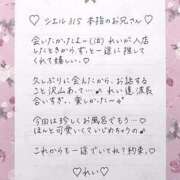 ♡ シエル 315 本指のお兄さん ♡
会いたかったよー(泣) れいが入店
したときから、ずっと一途に推して
くれて嬉しい♡
久しぶりに会えたから、お話する
こと沢山あって… れい達、波長
合いすぎ、楽しかったー♡
今回は珍しくお風呂でもう…
ほんと可愛いくていじめちゃうの
これからも一途でいてね?約束。♡
♡ れい ♡